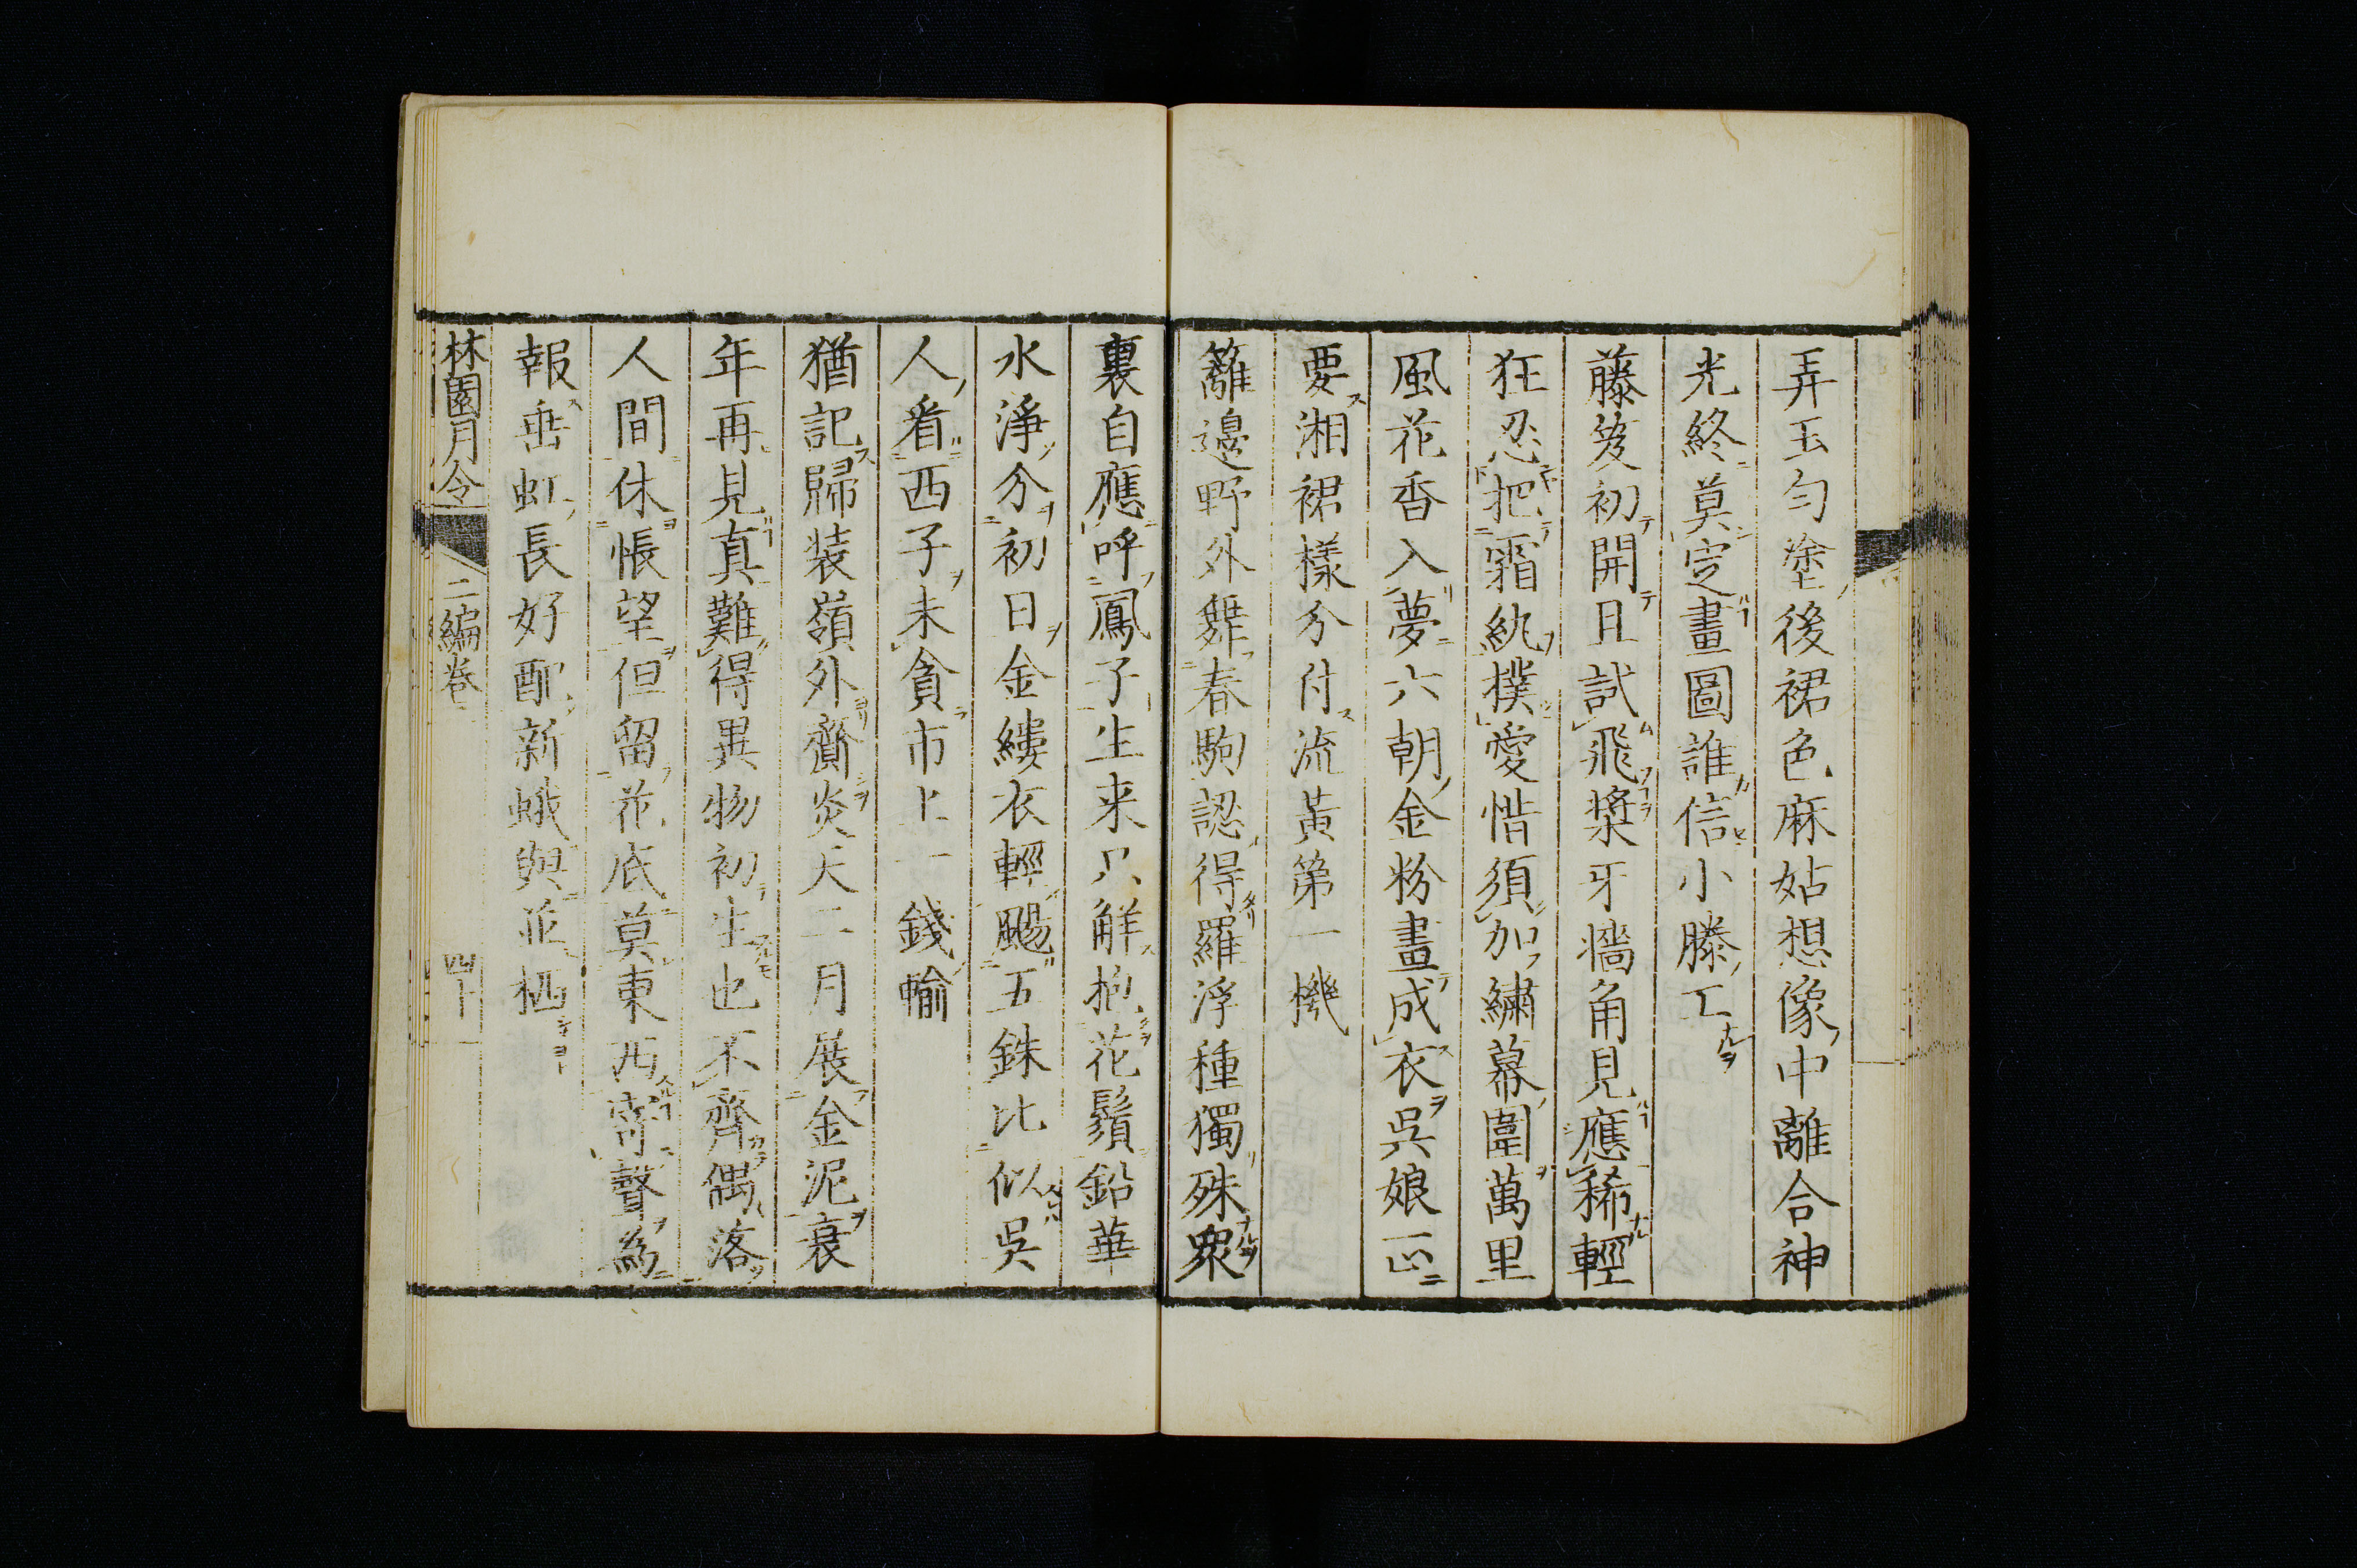 弄玉勻塗後裙色麻姑想像中離合神
光終莫定畫圖誰信小滕工
藤笈初開且試飛槳牙墻角見應稀輕
狂忍把霜紈撲愛惜須加繡幕圍萬里
風花香入夢六朝金粉畫成衣吳娘一心
要湘裙樣分付流黃第一機
籬邊野外舞春駒認得羅浮種獨殊眾
裏自應呼鳳子生来只解抱花鬚鉛華
水淨分初日金縷衣輕颺五銖比似吳
人看西子未貪市上一錢輸
猶記歸装嶺外齎炎天二月展金泥衰
年再見真難得異物初生也不齊偶落
人間休悵望但留花底莫東西寄聲為
報垂虹長好配新蛾與並栖
林園月令
二編卷
四十